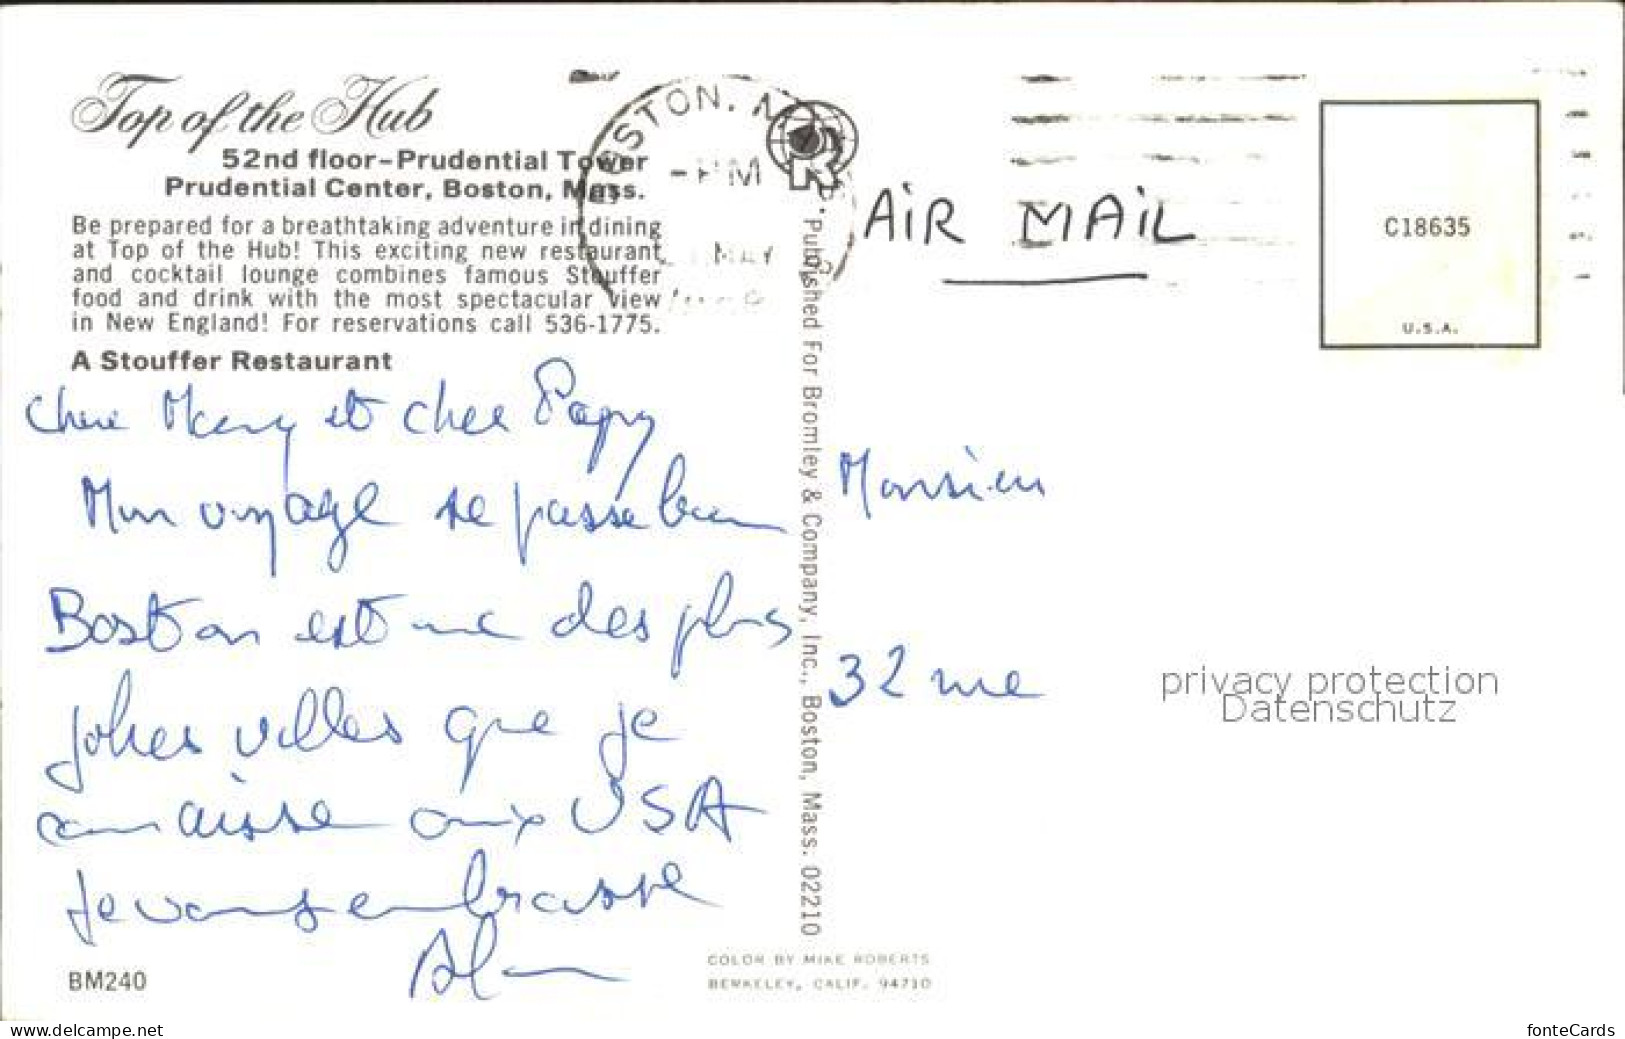 Top of the Hub
52nd floor-Prudential Tower
Prudential Center, Boston, Mass.
Be prepared for a breathtaking adventure in dining
at Top of the Hub! This exciting new restaurant
and cocktail lounge combines famous Stouffer
food and drink with the most spectacular view
in New England! For reservations call 536-1775.
A Stouffer Restaurant
Chere Mamy et cher Papy
Mon voyage se passe bien
Boston est une des plus
jolies villes que je
connaisse aux USA
Je vous embrasse
Alain
BM240
BOSTON, MA
PM
MAY
R
Published For Bromley & Company, Inc., Boston, Mass. 02210
COLOR BY MIKE ROBERTS
BERKELEY, CALIF. 94710
AiR MAiL
C18635
U.S.A.
Monsieur
32 rue
privacy protection
Datenschutz
www.delcampe.net
fonteCards